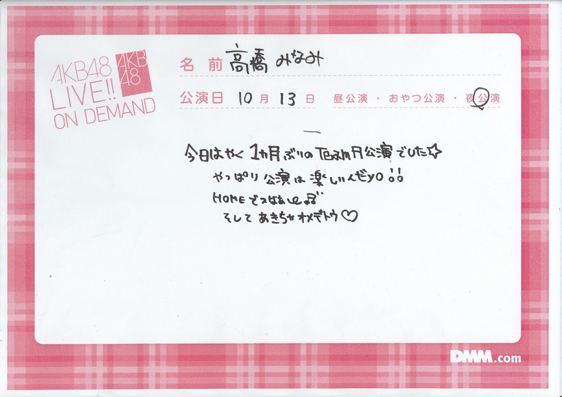 AKB48
LIVE!!
ON DEMAND
AKB
48
名 前 高橋 みなみ
公演日 10 月 13 日 昼公演・おやつ公演・夜公演
今日はやく1ヵ月ぶりのTeamA公演でした☆
やっぱり公演は楽しいんだyo!!
HOMEでっなぁいe♫
そして あきちゃ オメデトウ♡
DMM.com